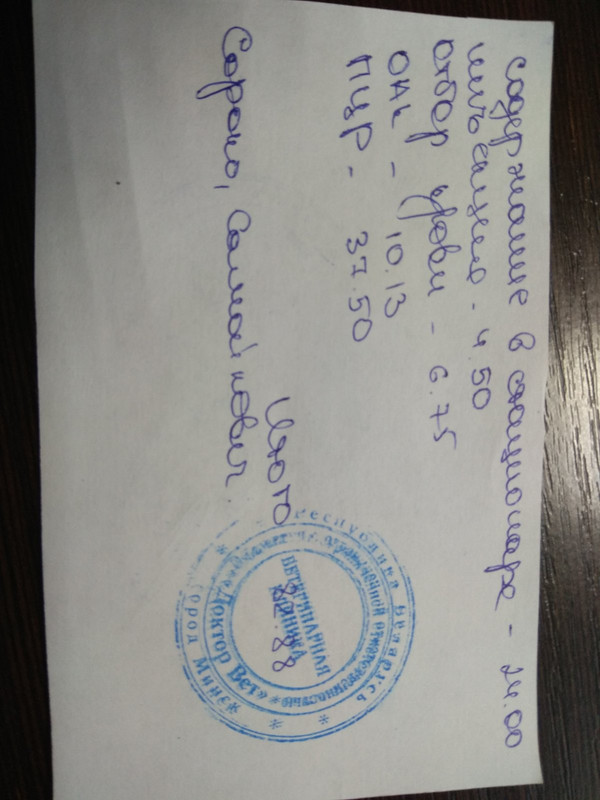 содержание в стационаре - 24.00
инъекция - 4.50
отбор крови - 6.75
ОАК - 10.13
ПЦР - 37.50
Итого 82.88
Республика Беларусь
город Минск
ограниченной ответственностью
«Доктор Вет»
ВЕТЕРИНАРНАЯ
КЛИНИКА